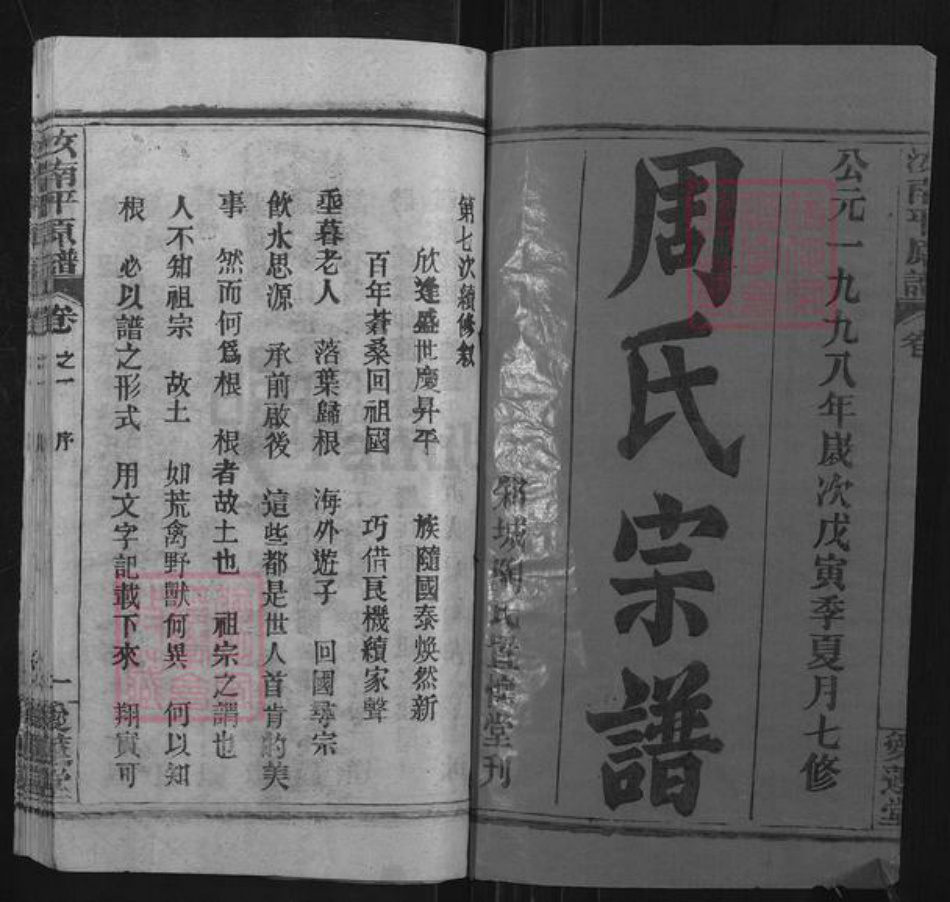 公元一九九八年歲次戊寅季夏月七修
周氏宗譜
城陶氏堂刊
愛蓮堂
第七次續修敘
欣逢盛世慶昇平 族隨國泰煥然新
百年蒼桑回祖國 巧借良機續家聲
垂暮老人 落葉歸根 海外遊子 回國尋宗
飲水思源 承前啟後 這些都是世人首肯的美
事 然而何爲根 根者故土也 祖宗之謂也
人不知祖宗 故土 如荒禽野獸何異 何以知
根 必以譜之形式 用文字記載下來 翔實可
汝南平原譜 卷之一 序 一 愛蓮堂